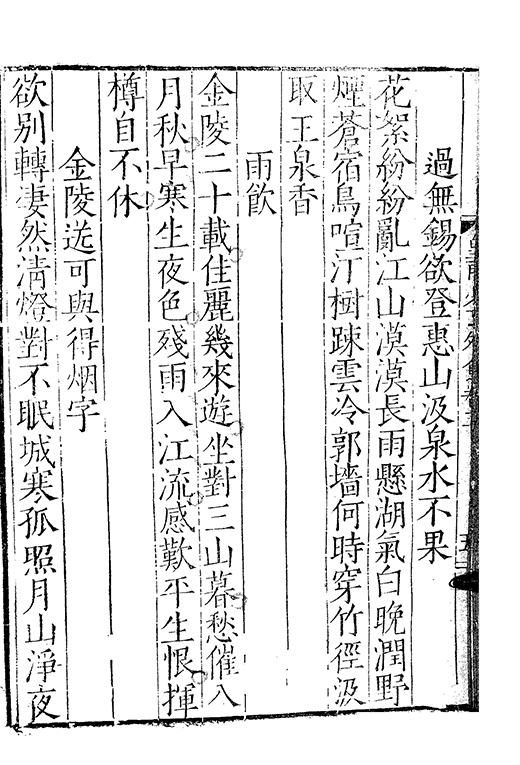 過無錫欲登惠山汲泉水不果
花絮紛紛亂江山漠漠長雨懸湖氣白晚潤野
煙蒼宿鳥喧汀樹踈雲冷郭墻何時穿竹徑汲
取玉泉香
雨飲
金陵二十載佳麗幾來遊坐對三山暮愁催八
月秋早寒生夜色殘雨入江流感歎平生恨揮
樽自不休
金陵送可與得烟字
欲別轉凄然清燈對不眠城寒孤照月山淨夜